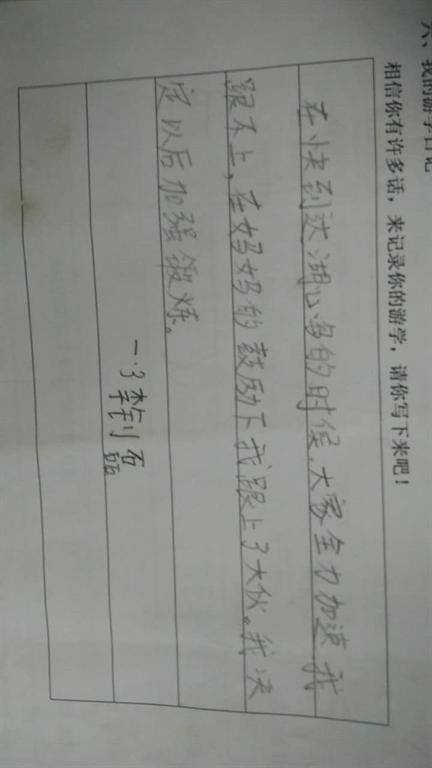 六、我的游学日记
相信你有许多话，来记录你的游学，请你写下来吧！
在快到达湖心岛的时候，大家全力加速，我
跟不上，在妈妈的鼓励下我跟上了大伙。我决
定以后加强锻炼。
一.3 李钊